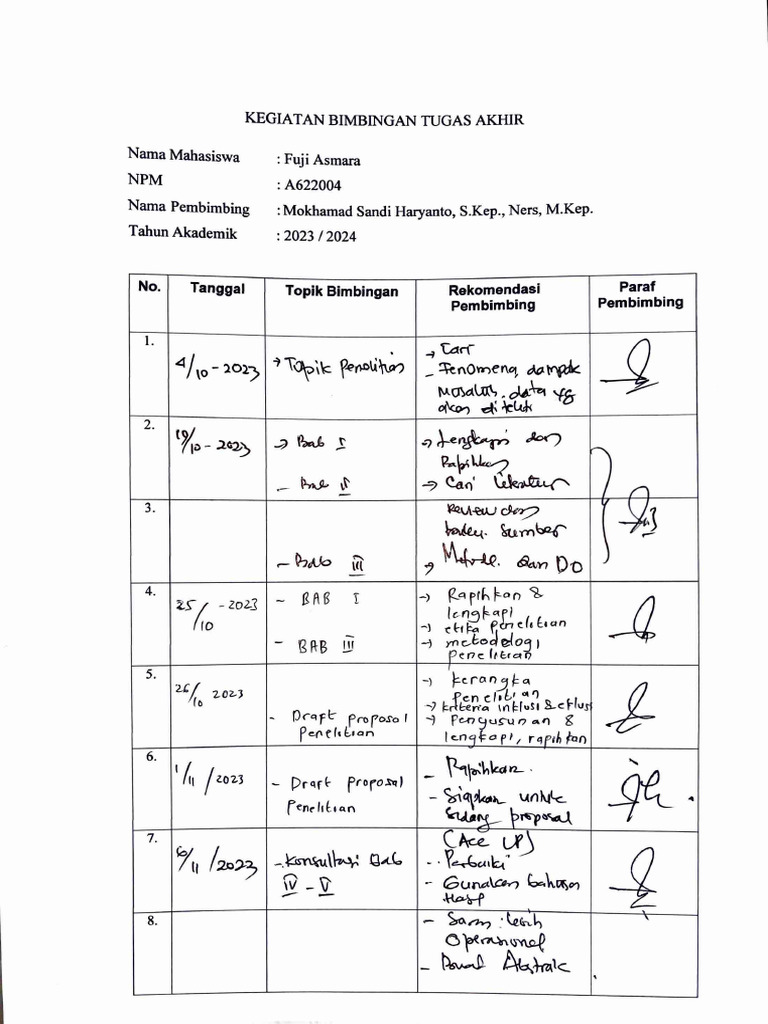 KEGIATAN BIMBINGAN TUGAS AKHIR
Nama Mahasiswa : Fuji Asmara
NPM : A622004
Nama Pembimbing : Mokhamad Sandi Haryanto, S.Kep., Ners, M.Kep.
Tahun Akademik : 2023 / 2024
No. Tanggal Topik Bimbingan Rekomendasi Pembimbing Paraf Pembimbing
1.
4/10-2023 → Topik Penelitian → Cari
- Fenomena, dampak
Masalah, data yg
akan diteliti
2.
19/10-2023 → Bab I → Lengkapi dan
Rapihkan
- Bab II → Cari Literatur
3.
Review dan
Sumber
- Bab III → Metode dan DO
4.
25/10-2023 - BAB I → Rapihkan &
lengkapi
→ etika penelitian
- BAB III → metodologi
penelitian
5.
26/10 2023 → kerangka
penelitian
→ kriteria inklusi & eklusi
- Draft proposal → Penyusunan &
penelitian lengkapi, rapihkan
6.
1/11/2023 - Rapihkan.
- Draft proposal - Siapkan untuk
penelitian sidang proposal
7.
(Acc UP)
6/11/2023 - Konsultasi Bab - Perbaiki
IV - V - Gunakan bahasa
Hasil
8.
- Saran : lebih
Operasional
- Buat Abstrak